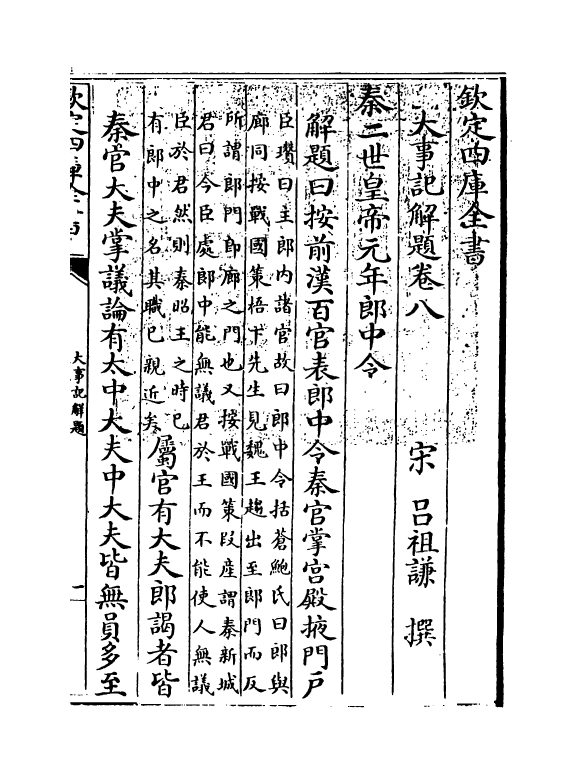 欽定四庫全書
大事記解題卷八
宋 呂祖謙 撰
秦二世皇帝元年郎中令
解題曰按前漢百官表郎中令秦官掌宫殿掖門戶
臣瓚曰主郎内諸官故曰郎中令括蒼鮑氏曰郎與
廊同按戰國策梧卞先生見魏王趨出至郎門而反
所謂郎門即廊之門也又按戰國策叚産謂秦新城
君曰今臣處郎中能無議君於王而不能使人無議
臣於君然則秦昭王之時已
有郎中之名其職已親近矣
屬官有大夫郎謁者皆
秦官大夫掌議論有太中大夫中大夫皆無員多至
大事記解題
一